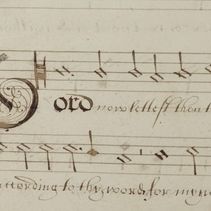 Lord now lettest thou t
according to thy word. for myne